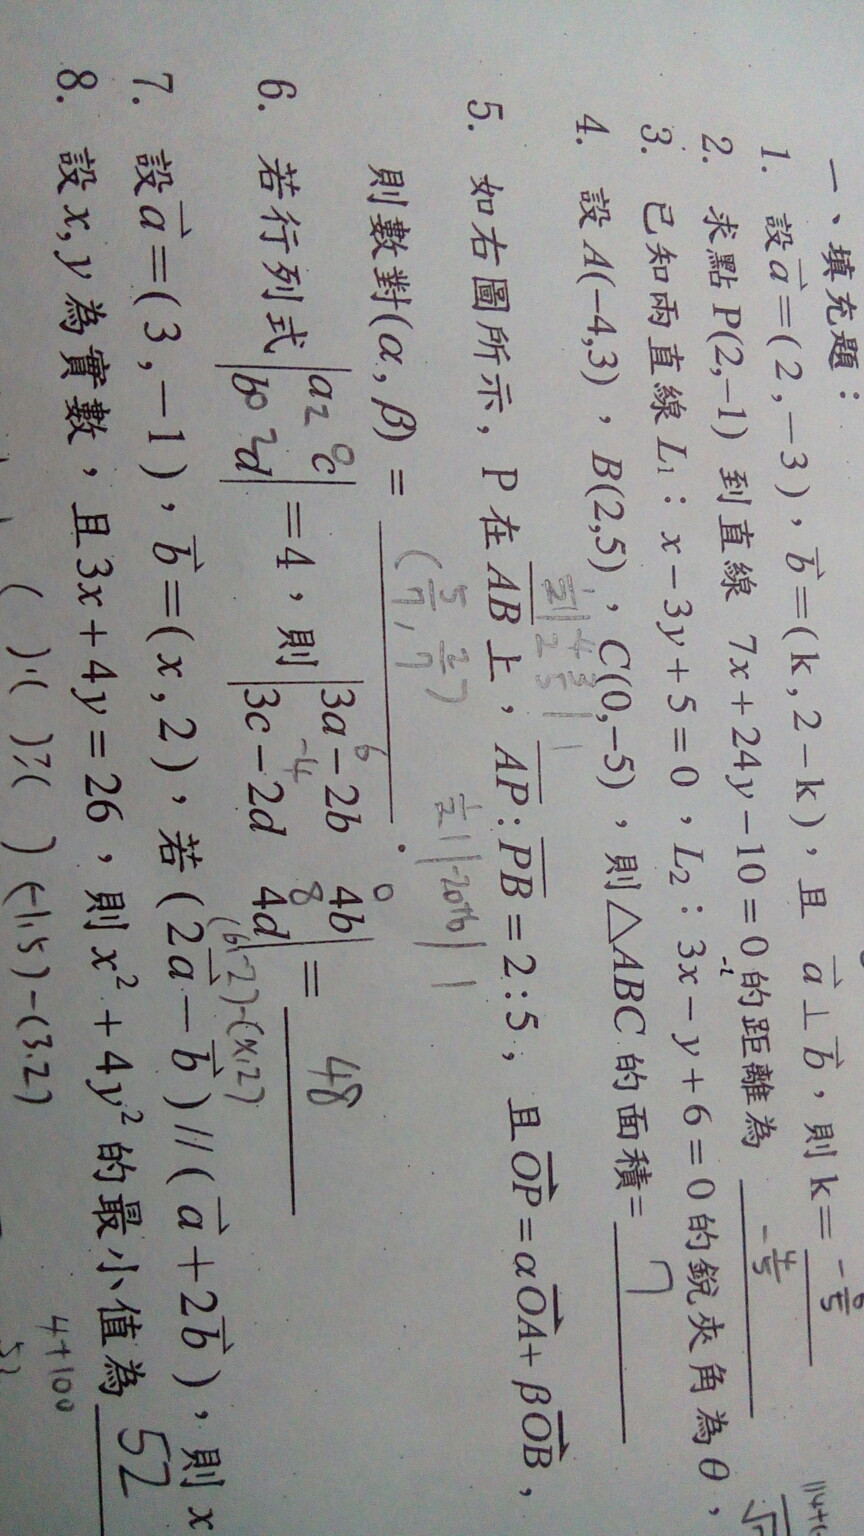 一、填充題：
1. 設a⃗=(2,−3)，b⃗=(k,2−k)，且 a⃗⊥b⃗，則k=
2. 求點P(2,−1) 到直線 7x+24y−10=0的距離為
3. 已知兩直線L₁：x−3y+5=0，L₂：3x−y+6=0的銳夾角為θ，
4. 設A(−4,3)，B(2,5)，C(0,−5)，則△ABC的面積= 7
5. 如右圖所示，P在AB上，AP:PB=2:5，且OP=αOA+βOB，
則數對(α,β)= (5/7, 2/7) .
6. 若行列式|a c; b d|=4，則|3a−2b 4b; 3c−2d 4d|= 48
(6,-2)-(x,2)
7. 設a⃗=(3,−1)，b⃗=(x,2)，若(2a⃗−b⃗)//(a⃗+2b⃗)，則x
8. 設x,y為實數，且3x+4y=26，則x²+4y²的最小值為 52
4+100
( )·( )≥( ) (-1,5)-(3,2)